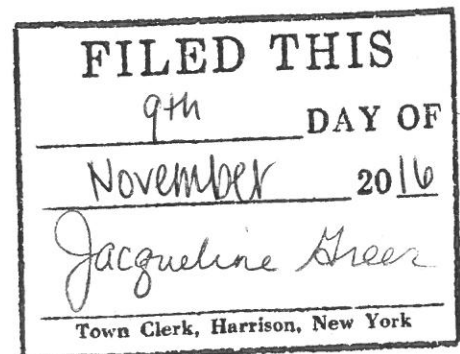 FILED THIS
9th DAY OF
November 2016
Jacqueline Greer
Town Clerk, Harrison, New York